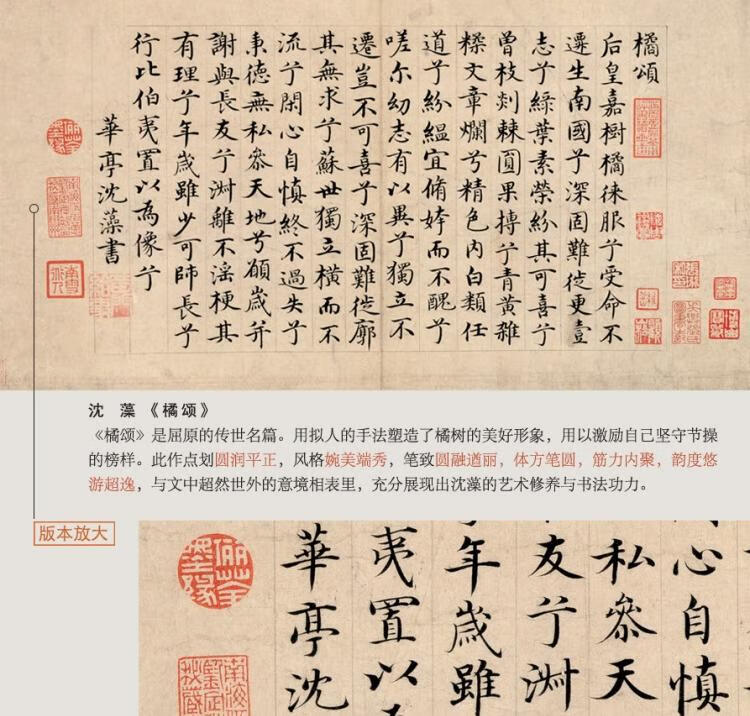 橘頌
后皇嘉樹橘徠服兮受命不
遷生南國兮深固難徙更壹
志兮綠葉素榮紛其可喜兮
曾枝剡棘圓果摶兮青黃雜
糅文章爛兮精色內白類任
道兮紛緼宜脩姱而不醜兮
嗟尔幼志有以異兮獨立不
遷豈不可喜兮深固難徙廓
其無求兮蘇世獨立橫而不
流兮閑心自慎終不過失兮
秉德無私參天地兮願歲并
謝與長友兮淑離不淫梗其
有理兮年歲雖少可師長兮
行比伯夷置以為像兮
華亭沈藻書
沈 藻 《橘颂》
《橘颂》是屈原的传世名篇。用拟人的手法塑造了橘树的美好形象，用以激励自己坚守节操
的榜样。此作点划圆润平正，风格婉美端秀，笔致圆融遒丽，体方笔圆，筋力内聚，韵度悠
游超逸，与文中超然世外的意境相表里，充分展现出沈藻的艺术修养与书法功力。
版本放大
心自慎
私參天
友兮淑
年歲雖
夷置以
華亭沈